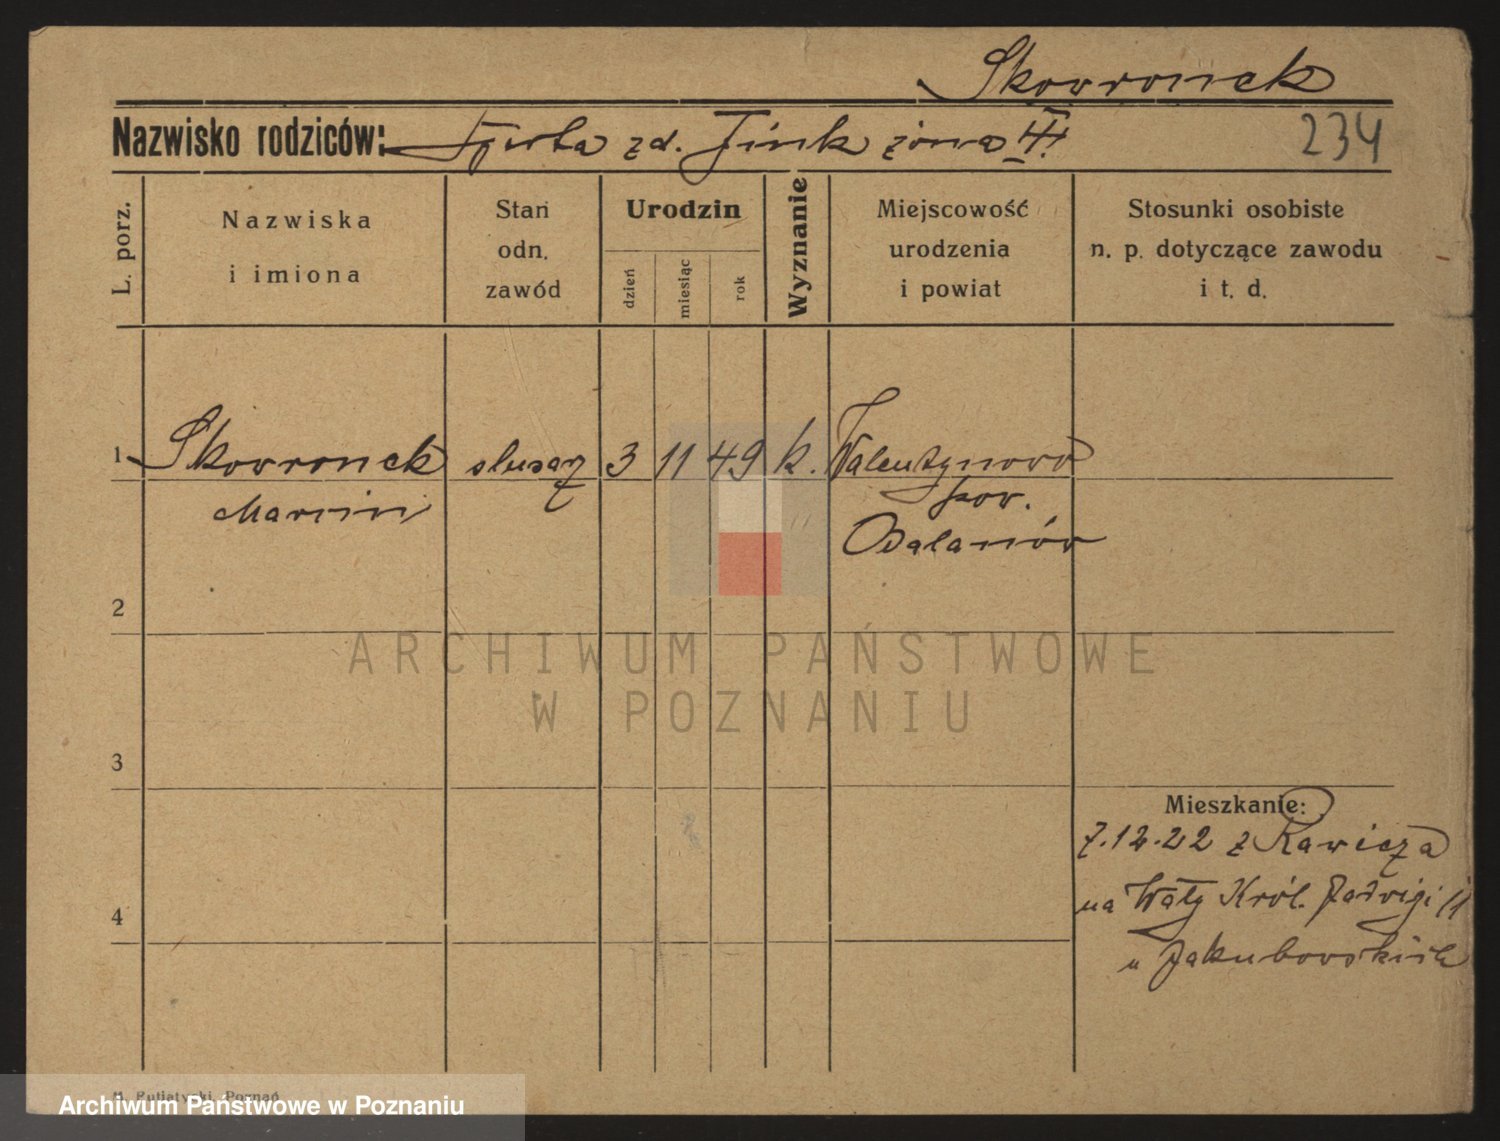 Skowronek
Nazwisko rodziców: zd. Fink żona III.
234
L. porz.
Nazwiska
i imiona
Stan
odn.
zawód
Urodzin
dzień
miesiąc
rok
Wyznanie
Miejscowość
urodzenia
i powiat
Stosunki osobiste
n. p. dotyczące zawodu
i t. d.
1 Skowronek ślusarz 3 11 49 k. Walentynowo
Marcin pow.
Odalanów
2
ARCHIWUM PAŃSTWOWE
W POZNANIU
3
Mieszkanie:
7.12.22 z Rawicza
na Wały Król. Jadwigi 11
4
u Jakubowskich
Putiatycki, Poznań
Archiwum Państwowe w Poznaniu